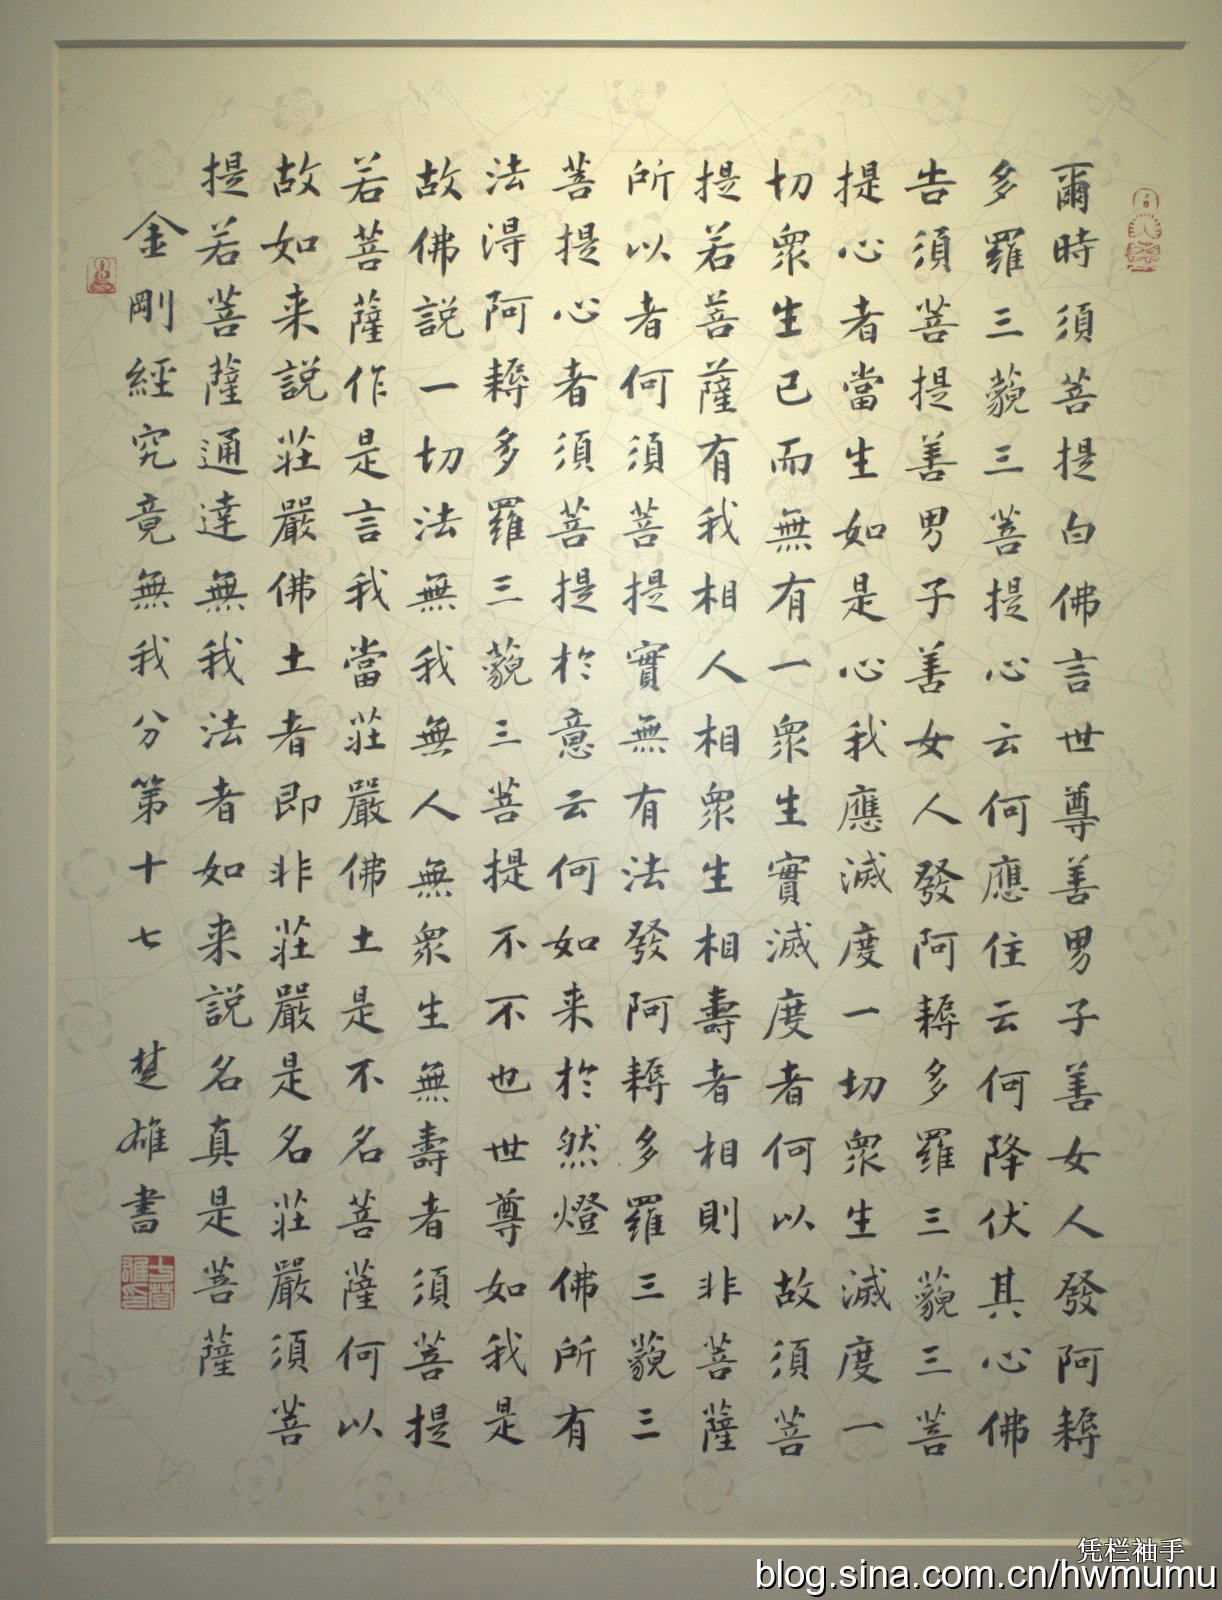 爾時須菩提白佛言世尊善男子善女人發阿耨
多羅三藐三菩提心云何應住云何降伏其心佛
告須菩提善男子善女人發阿耨多羅三藐三菩
提心者當生如是心我應滅度一切眾生滅度一
切眾生已而無有一眾生實滅度者何以故須菩
提若菩薩有我相人相眾生相壽者相則非菩薩
所以者何須菩提實無有法發阿耨多羅三藐三
菩提心者須菩提於意云何如来於然燈佛所有
法淂阿耨多羅三藐三菩提不不也世尊如我是
故佛說一切法無我無人無眾生無壽者須菩提
若菩薩作是言我當莊嚴佛土是不名菩薩何以
故如来說莊嚴佛土者即非莊嚴是名莊嚴須菩
提若菩薩通達無我法者如来說名真是菩薩
金剛經究竟無我分第十七 楚雄書
凭栏袖手
blog.sina.com.cn/hwmumu